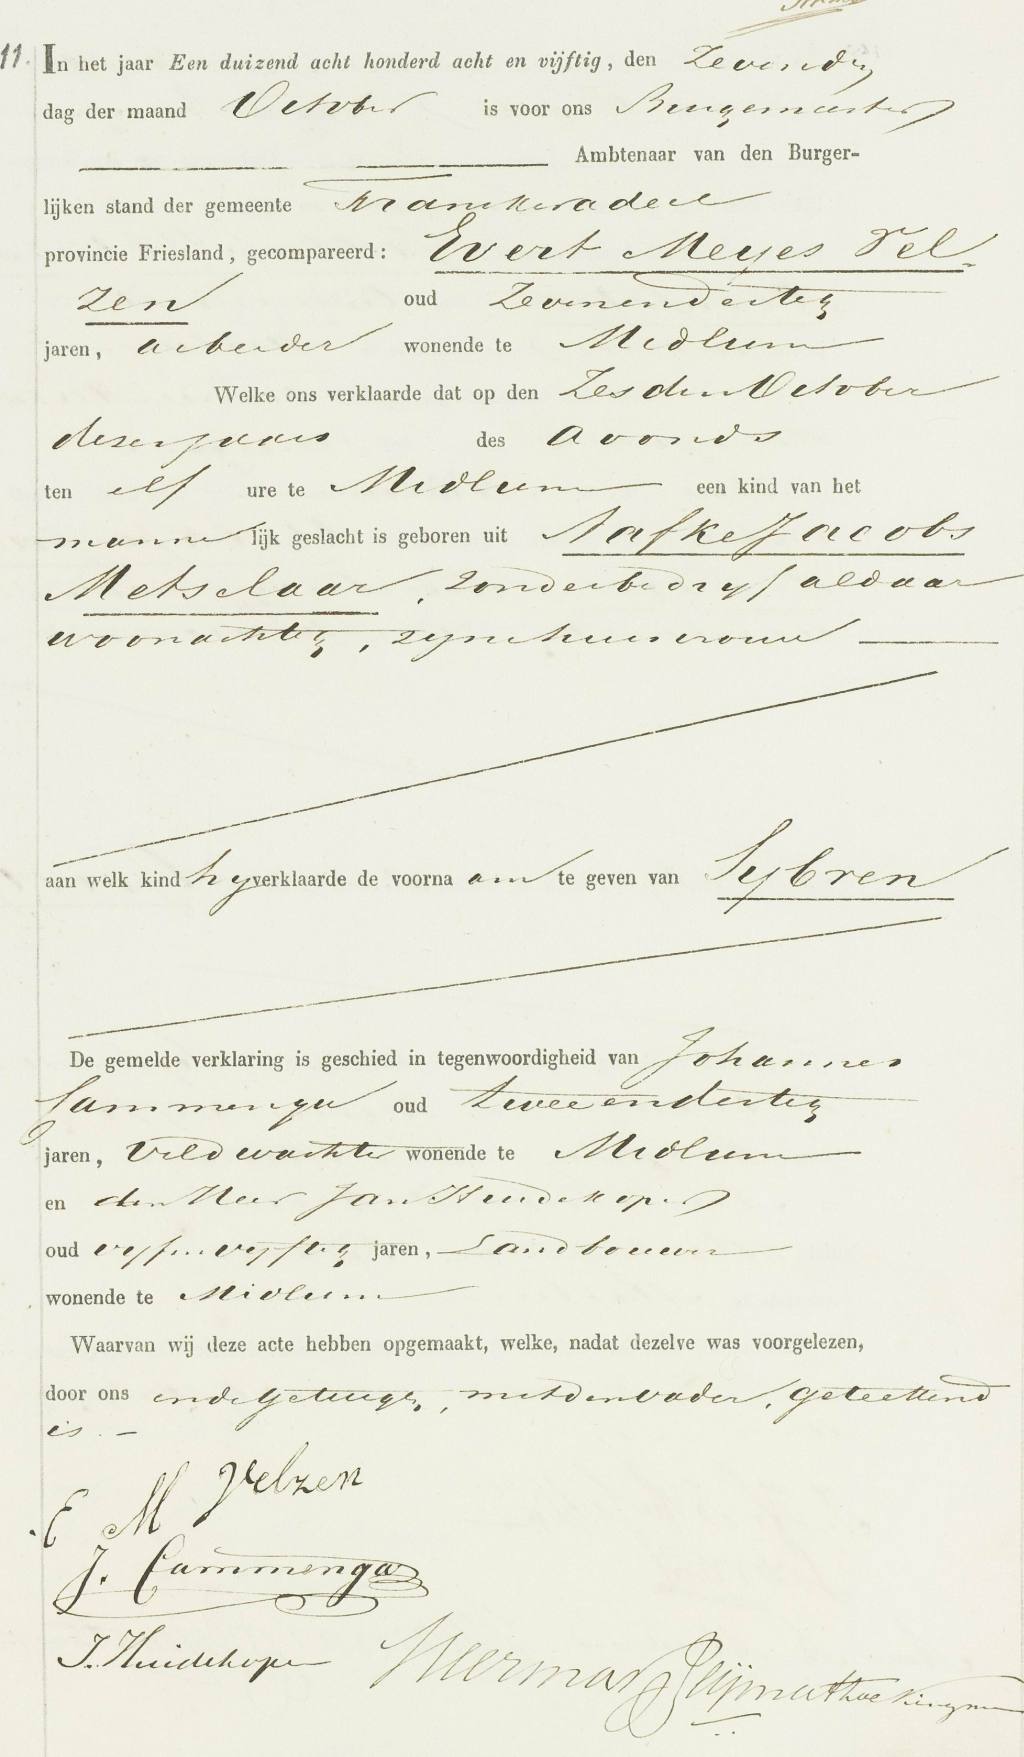 11. In het jaar Een duizend acht honderd acht en vijftig, den Zevenden
dag der maand October is voor ons Burgemeester
Ambtenaar van den Burger-
lijken stand der gemeente Franekeradeel
provincie Friesland, gecompareerd: Evert Meyes Vel-
zen oud Zevenendertig
jaren, arbeider wonende te Midlum
Welke ons verklaarde dat op den Zesden October
dezer jaars des avonds
ten elf ure te Midlum een kind van het
manne lijk geslacht is geboren uit Aafke Jacobs
Metselaar, zonder bedryf aldaar
woonachtig, zyne huisvrouw
aan welk kind hy verklaarde de voorna am te geven van Sybren
De gemelde verklaring is geschied in tegenwoordigheid van Johannes
Cammenga oud tweeendertig
jaren, Veldwachter wonende te Midlum
en den Heer Jan Huidekoper
oud vyfenvyftig jaren, Landbouwer
wonende te Midlum
Waarvan wij deze acte hebben opgemaakt, welke, nadat dezelve was voorgelezen,
door ons en de getuigen, met den vader, geteekend
is.
E M Velzen
J. Cammenga
J. Huidekoper